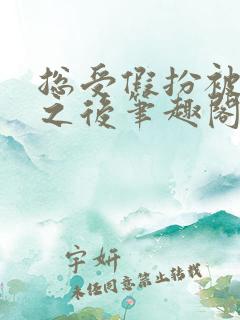 总受假扮被
之后笔趣阁
宇妍
未经同意禁止转载